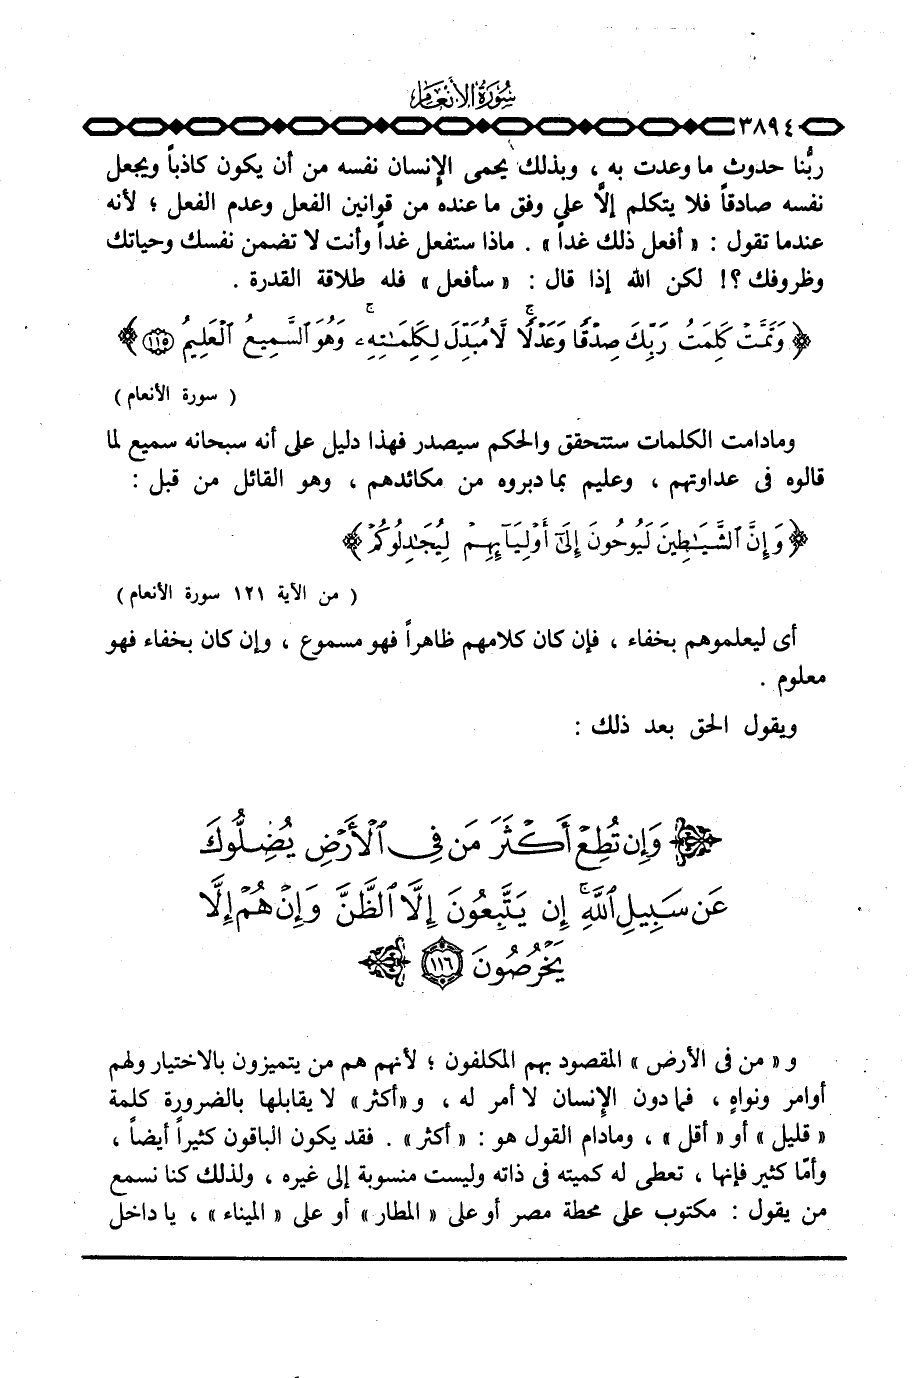 سورة الأنعام
٣٨٩٤
ربُّنا حدوث ما وعدت به ، وبذلك يحمى الإنسان نفسه من أن يكون كاذباً ويجعل
نفسه صادقاً فلا يتكلم إلَّا على وفق ما عنده من قوانين الفعل وعدم الفعل ؛ لأنه
عندما تقول : « أفعل ذلك غداً » . ماذا ستفعل غداً وأنت لا تضمن نفسك وحياتك
وظروفك ؟! لكن الله إذا قال : « سأفعل » فله طلاقة القدرة .
﴿ وَتَمَّتْ كَلِمَتُ رَبِّكَ صِدْقًا وَعَدْلًا ۚ لَّا مُبَدِّلَ لِكَلِمَـٰتِهِۦ ۚ وَهُوَ ٱلسَّمِيعُ ٱلْعَلِيمُ ١١٥ ﴾
( سورة الأنعام )
ومادامت الكلمات ستتحقق والحكم سيصدر فهذا دليل على أنه سبحانه سميع لما
قالوه فى عداوتهم ، وعليم بما دبروه من مكائدهم ، وهو القائل من قبل :
﴿ وَإِنَّ ٱلشَّيَـٰطِينَ لَيُوحُونَ إِلَىٰٓ أَوْلِيَآئِهِمْ لِيُجَـٰدِلُوكُمْ ﴾
( من الآية ١٢١ سورة الأنعام )
أى ليعلموهم بخفاء ، فإن كان كلامهم ظاهراً فهو مسموع ، وإن كان بخفاء فهو
معلوم .
ويقول الحق بعد ذلك :
﴿ وَإِن تُطِعْ أَكْثَرَ مَن فِى ٱلْأَرْضِ يُضِلُّوكَ
عَن سَبِيلِ ٱللَّهِ ۚ إِن يَتَّبِعُونَ إِلَّا ٱلظَّنَّ وَإِنْ هُمْ إِلَّا
يَخْرُصُونَ ١١٦ ﴾
و « من فى الأرض » المقصود بهم المكلفون ؛ لأنهم هم من يتميزون بالاختيار ولهم
أوامر ونواهٍ ، فما دون الإنسان لا أمر له ، و «أكثر» لا يقابلها بالضرورة كلمة
« قليل » أو « أقل » ، ومادام القول هو : « أكثر » . فقد يكون الباقون كثيراً أيضاً ،
وأمّا كثير فإنها ، تعطى له كميته فى ذاته وليست منسوبة إلى غيره ، ولذلك كنا نسمع
من يقول : مكتوب على محطة مصر أو على « المطار » أو على « الميناء » ، يا داخل